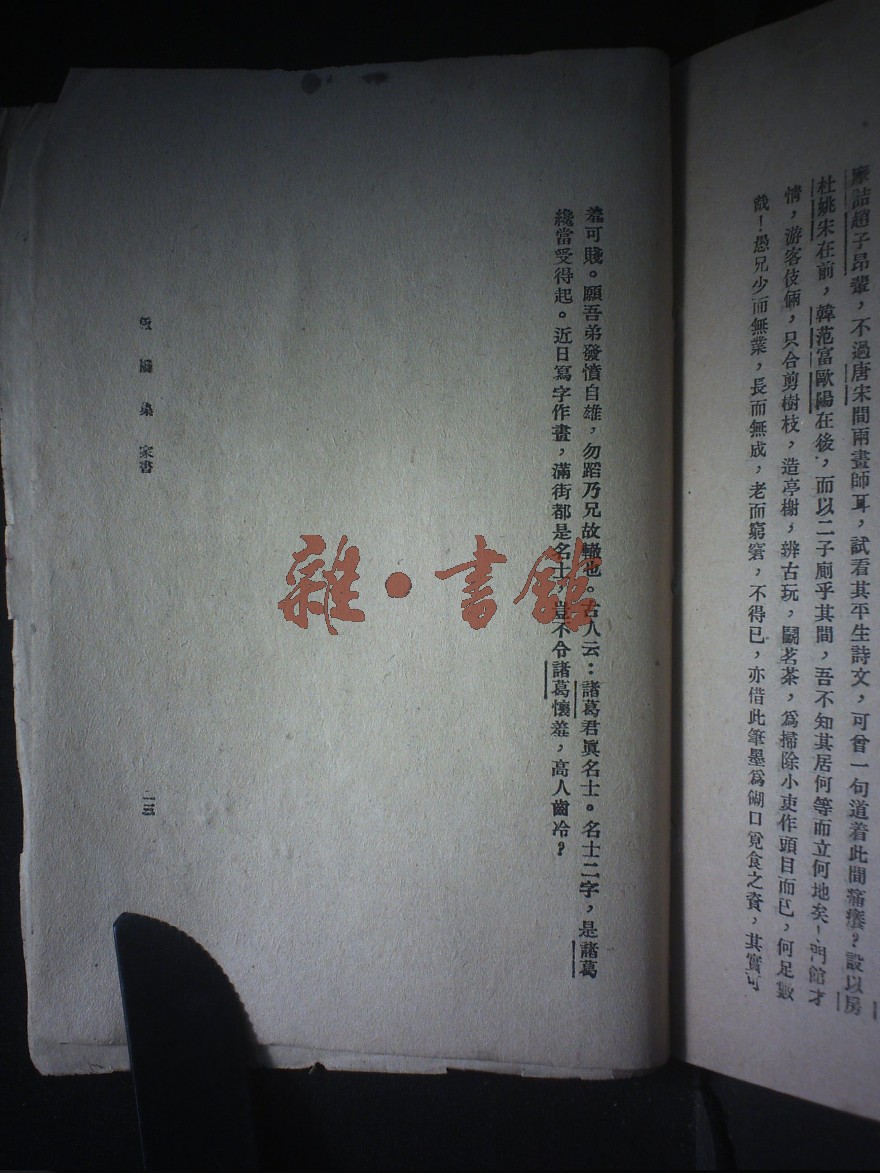 摩詰趙子昂輩，不過唐宋間兩畫師耳，試看其平生詩文，可曾一句道着此間痛癢？設以房
杜姚宋在前，韓范富歐陽在後，而以二子廁乎其間，吾不知其居何等而立何地矣！門館才
情，游客伎倆，只合剪樹枝，造亭榭，辨古玩，鬭茗茶，爲掃除小吏作頭目而已，何足數
哉！愚兄少而無業，長而無成，老而窮窘，不得已，亦借此筆墨爲餬口覓食之資，其實可
羞可賤。願吾弟發憤自雄，勿蹈乃兄故轍也。古人云：諸葛君眞名士。名士二字，是諸葛
纔當受得起。近日寫字作畫，滿街都是名士，豈不令諸葛懷羞，高人齒冷？
家書
二三
雜·書館